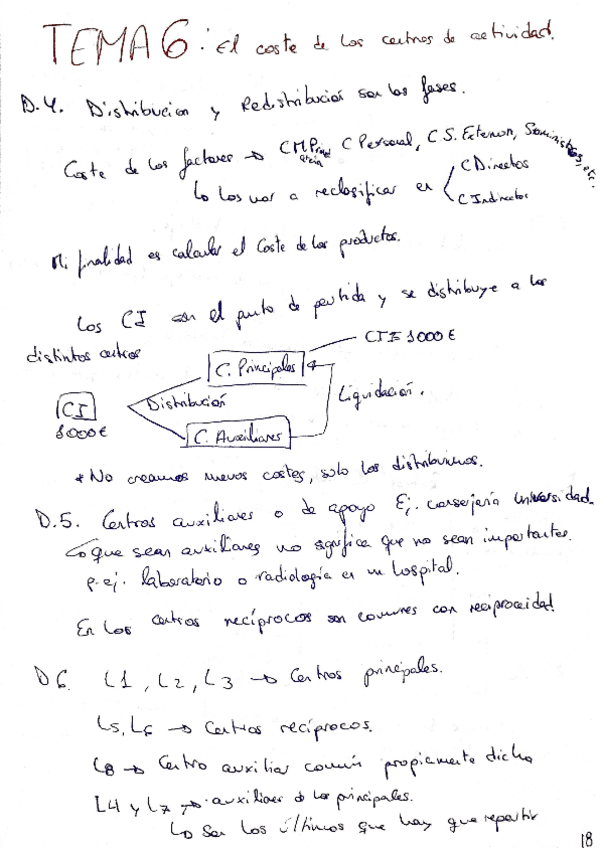 TEMA 6: El coste de los centros de actividad.
D.4. Distribucion y Redistribución son las fases.
Coste de los factores → CMPrima, C Personal, C S. Externon, Suministros, etc.
↳ Los vas a reclasificar en C Directos
C Indirectos
Mi finalidad es calcular el Coste de los productos.
Los CI son el punto de partida y se distribuye a los
distintos centros
CTE 1000 €
C. Principales
CI
Distribución
Liquidación.
1000 €
C. Auxiliares
* No creamos nuevos costes, solo los distribuimos.
D.5. Centros auxiliares o de apoyo Ej. conserjería Universidad.
↳ que sean auxiliares no significa que no sean importantes.
p. ej. laboratorio o radiología en un hospital.
En los centros recíprocos son comunes con reciprocidad.
D6. L1, L2, L3 → Centros principales.
L5, L6 → Centros recíprocos.
L8 → Centro auxiliar común propiamente dicho
L4 y L7 → auxiliares de los principales.
↳ Son los últimos que hay que repartir
18